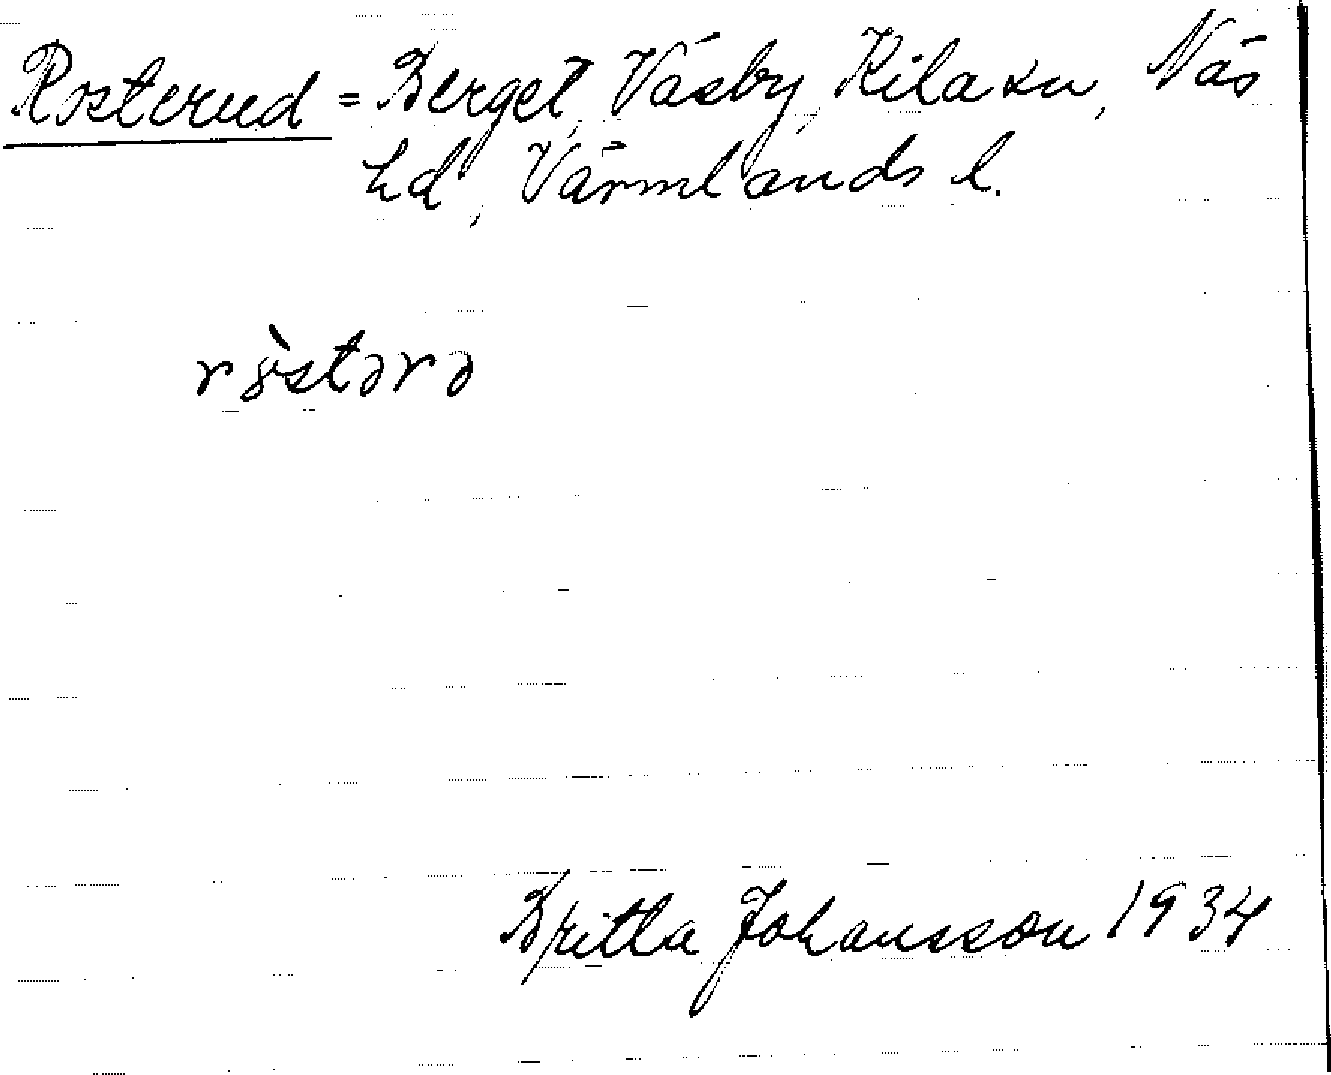 Rosterud = Berget, Väsby, Kila sn, Näs
hd, Värmlands l.
rö̀stərə
Britta Johansson 1934